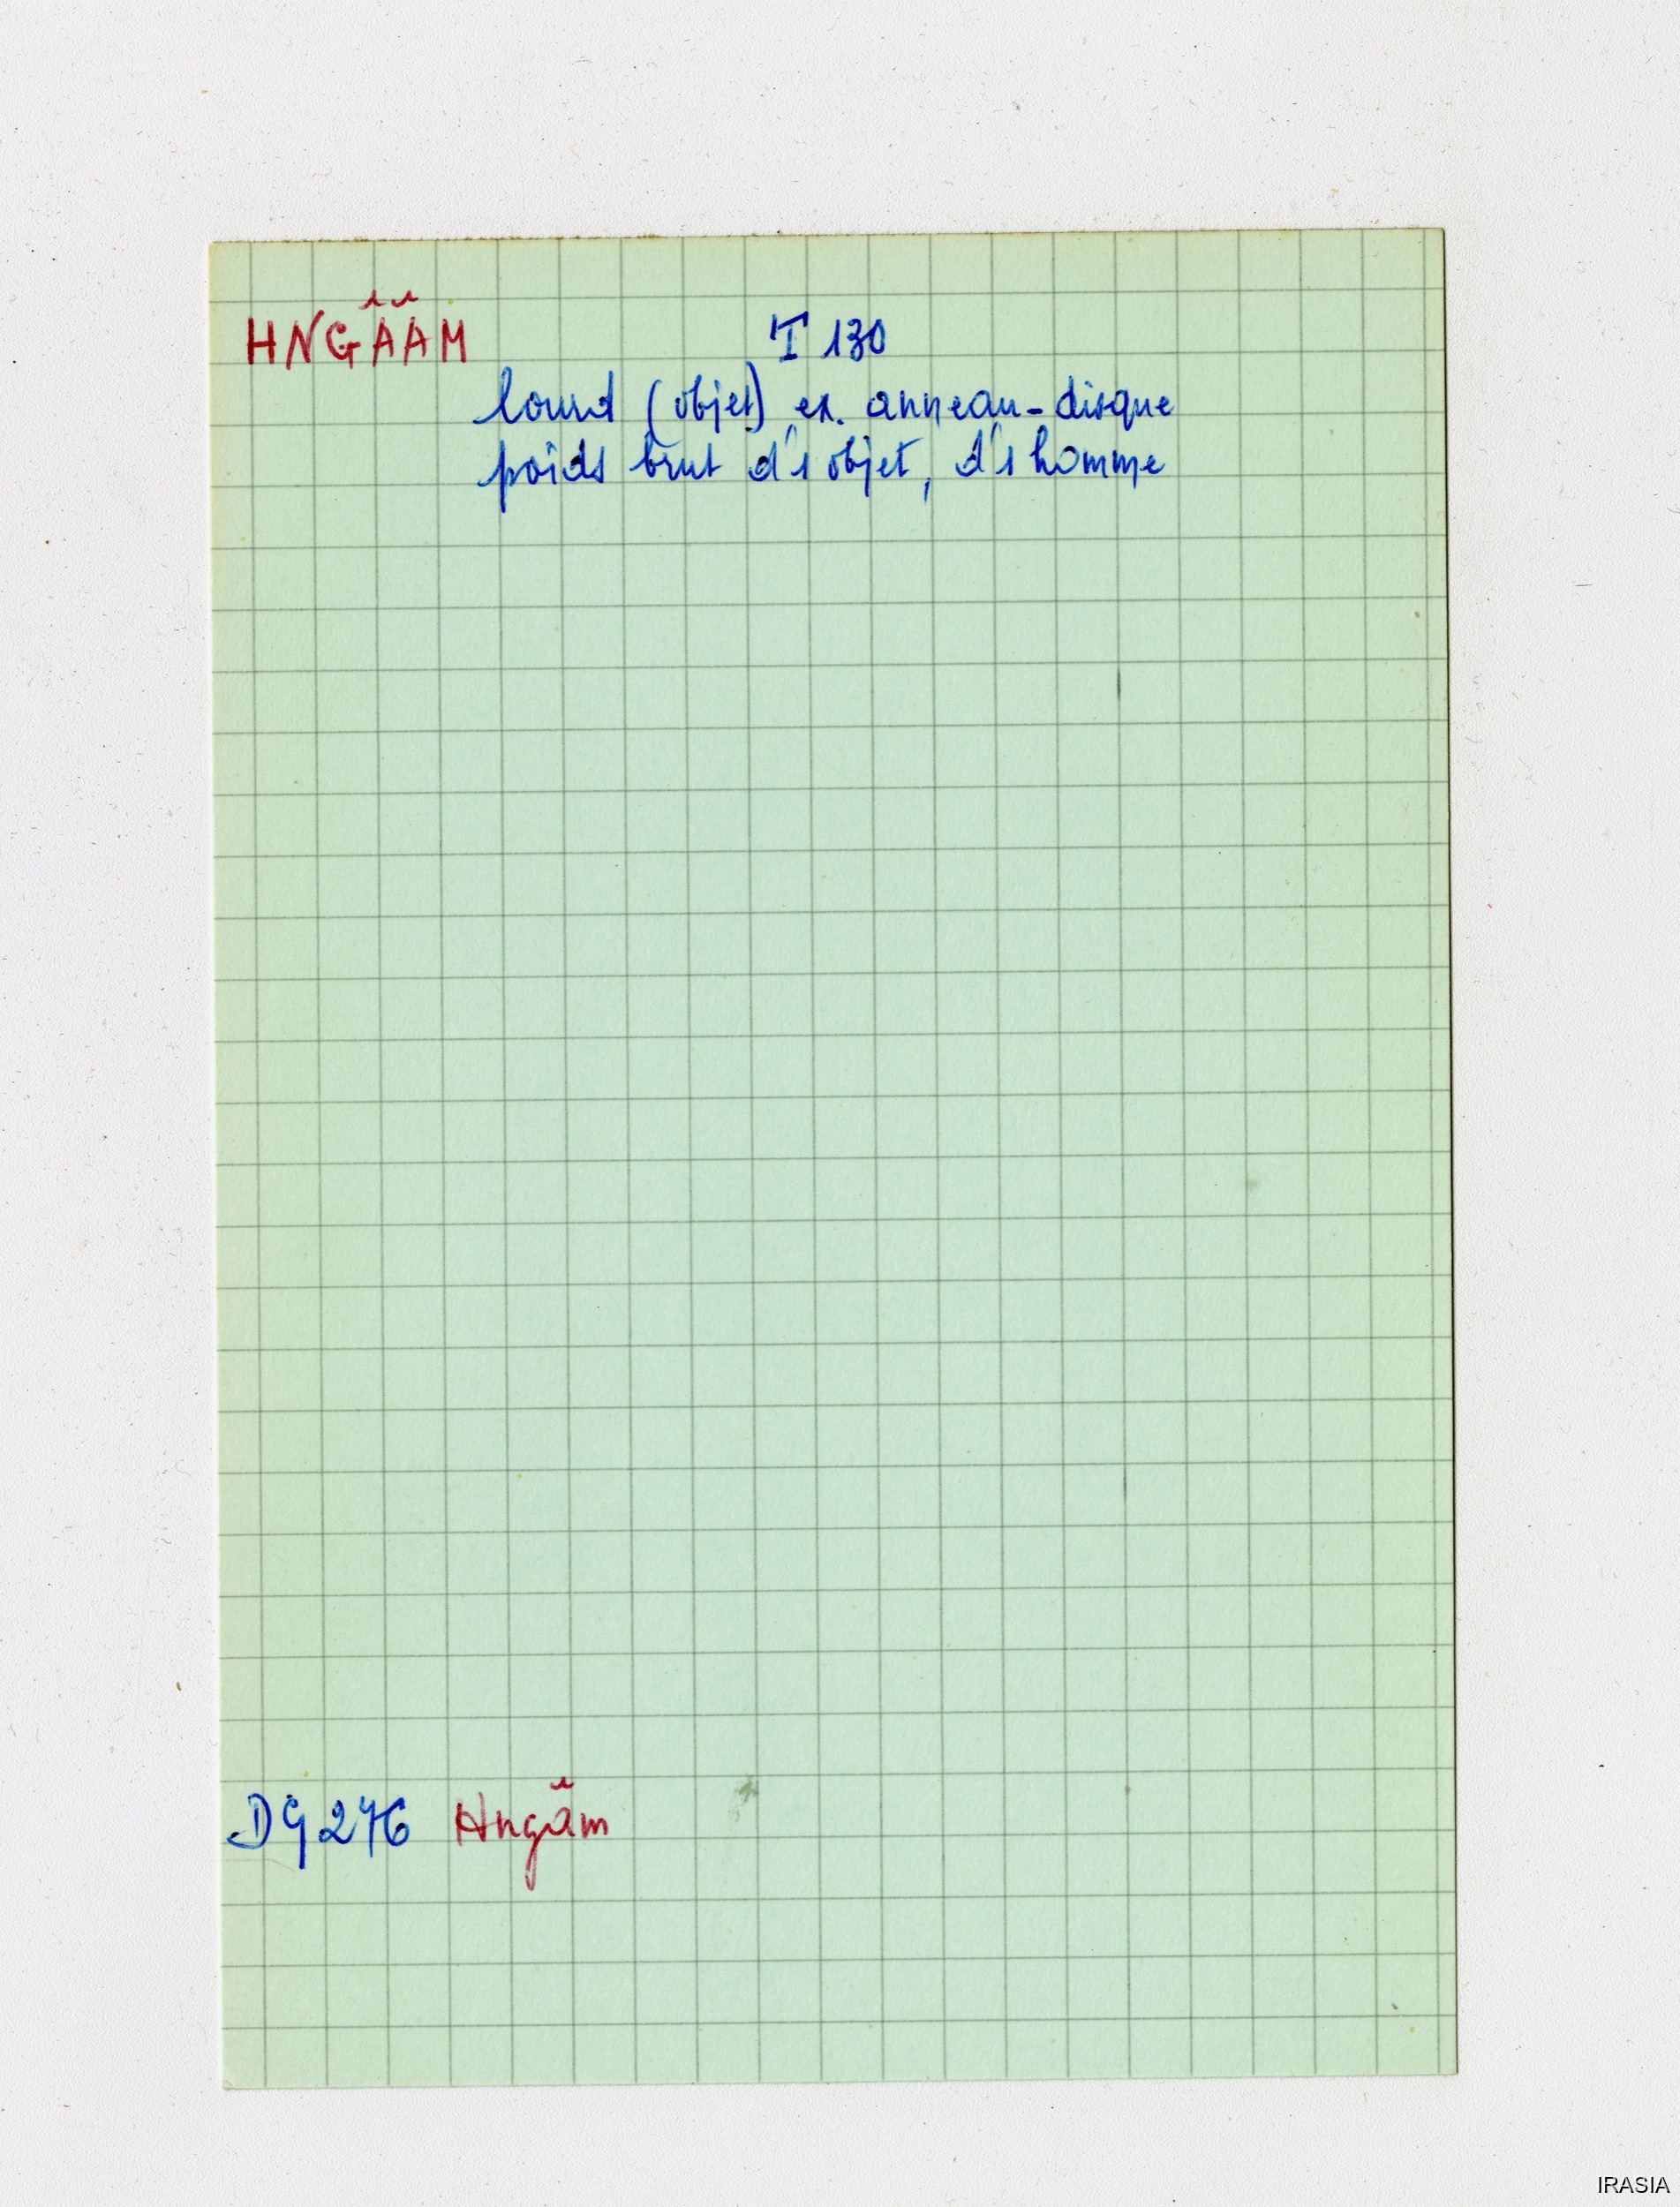 HNGÃÃM T 130
lourd (objet) ex. anneau-disque
poids brut d'1 objet, d'1 homme
DG 276 Hngãm
IRASIA